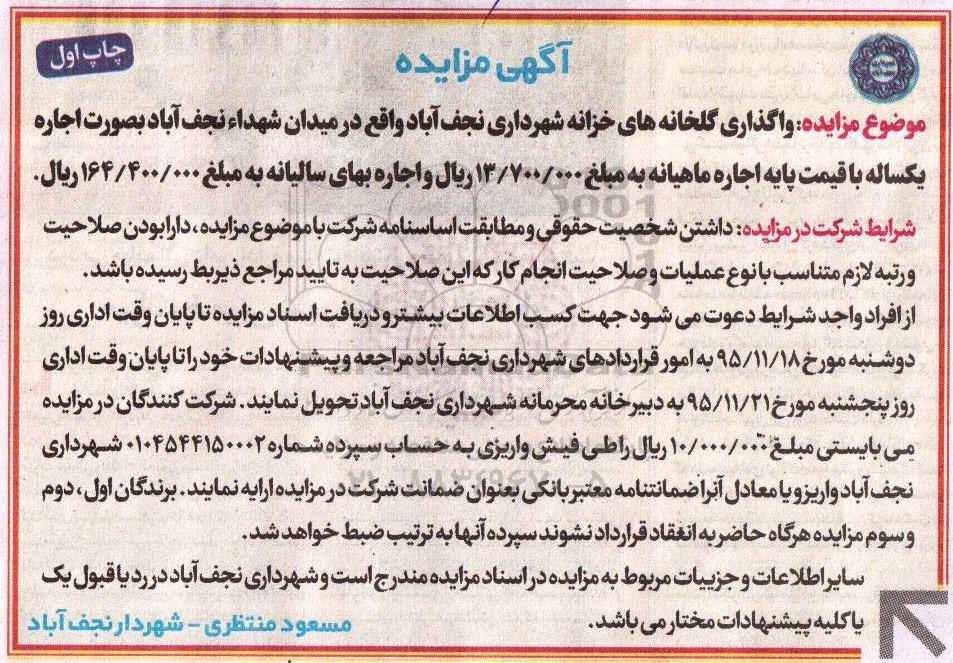 چاپ اول
آگهی مزایده
موضوع مزایده: واگذاری گلخانه های خزانه شهرداری نجف آباد واقع در میدان شهداء نجف آباد بصورت اجاره
یکساله با قیمت پایه اجاره ماهیانه به مبلغ ۱۳/۷۰۰/۰۰۰ ریال و اجاره بهای سالیانه به مبلغ ۱۶۴/۴۰۰/۰۰۰ ریال.
شرایط شرکت در مزایده: داشتن شخصیت حقوقی و مطابقت اساسنامه شرکت با موضوع مزایده، دارا بودن صلاحیت
و رتبه لازم متناسب با نوع عملیات و صلاحیت انجام کار که این صلاحیت به تایید مراجع ذیربط رسیده باشد.
از افراد واجد شرایط دعوت می شود جهت کسب اطلاعات بیشتر و دریافت اسناد مزایده تا پایان وقت اداری روز
دوشنبه مورخ ۹۵/۱۱/۱۸ به امور قراردادهای شهرداری نجف آباد مراجعه و پیشنهادات خود را تا پایان وقت اداری
روز پنجشنبه مورخ ۹۵/۱۱/۲۱ به دبیرخانه محرمانه شهرداری نجف آباد تحویل نمایند. شرکت کنندگان در مزایده
می بایستی مبلغ ۱۰/۰۰۰/۰۰۰ ریال را طی فیش واریزی به حساب سپرده شماره ۰۱۰۴۵۴۴۱۵۰۰۰۲ شهرداری
نجف آباد واریز و یا معادل آنرا ضمانتنامه معتبر بانکی بعنوان ضمانت شرکت در مزایده ارایه نمایند. برندگان اول، دوم
و سوم مزایده هرگاه حاضر به انعقاد قرارداد نشوند سپرده آنها به ترتیب ضبط خواهد شد.
سایر اطلاعات و جزییات مربوط به مزایده در اسناد مزایده مندرج است و شهرداری نجف آباد در رد یا قبول یک
یا کلیه پیشنهادات مختار می باشد.
مسعود منتظری - شهردار نجف آباد